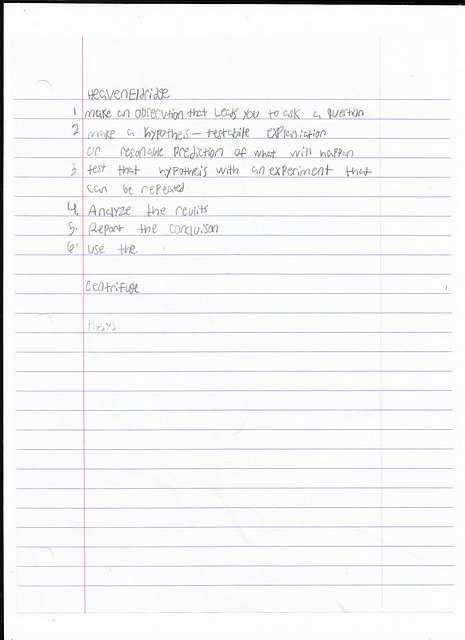 HeavenEldridge
1 make an obserution that leads you to ask a question
2 make a hypotheis - testabile explaniation
or resonable prediction of what will happen
3 test that hypotheis with an experiment that
can be repeated
4. Analyze the reults
5. Report the conclusion
6. use the
Centrifuge